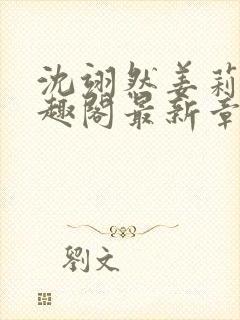 沈翊然姜莉
趣阁最新章
劉文